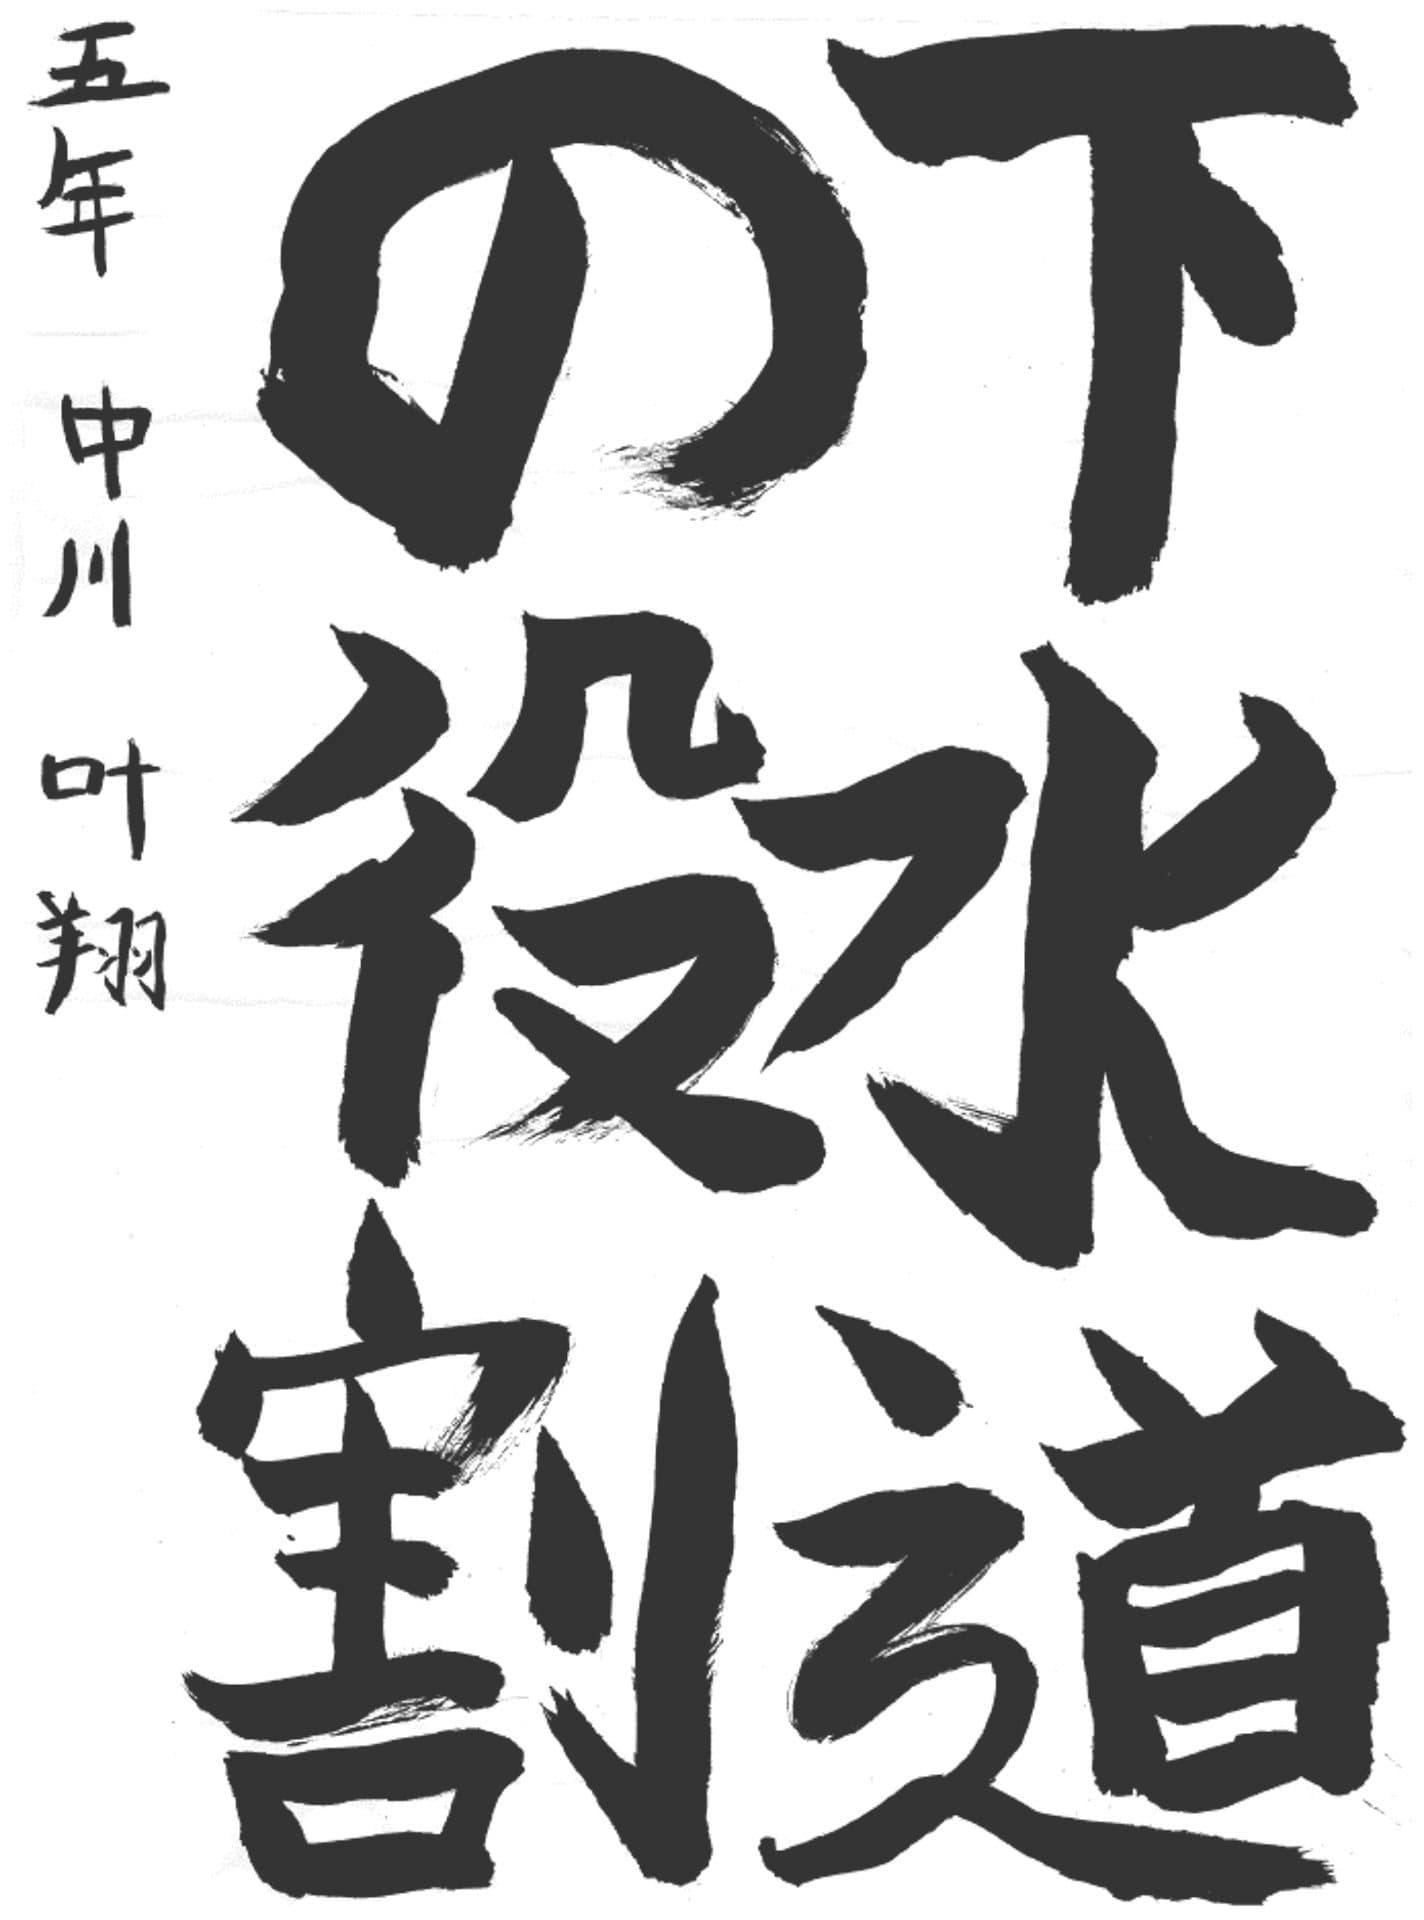 下水道
の役割
五年 中川 叶翔